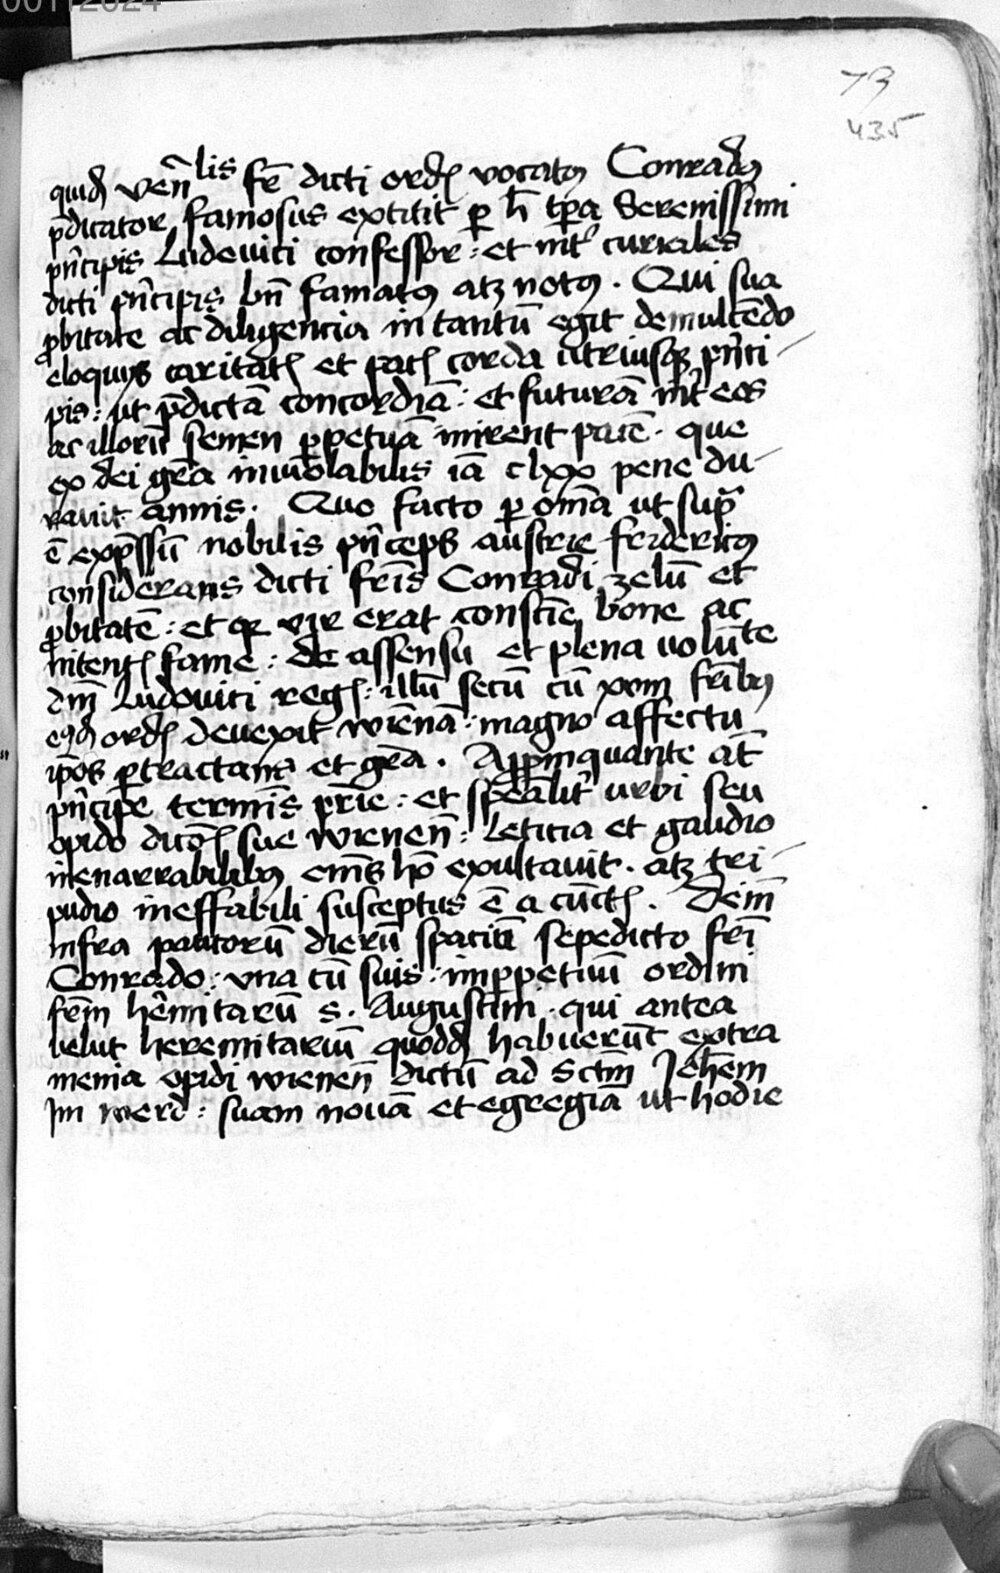 00112024
73
435
quidā ven̄lis fr̄ dicti ordīs vocatus Conradus
p̄dicator famosus extitit per h̄ tp̄a Serenissimi
pn̄cipis Ludovici confessor : et int̄ curiales
dicti pn̄cipis bn̄ famatus atqz notus . Qui sua
probitate ac diligencia in tantū egit demulcēdo
eloquiis caritatis et pacis corda utriusqz pn̄ci-
pis : ut p̄dictā concordiā : et futurā int̄ eos
ac illorū semen perpetuā inirent pacē . que
ex dei gr̄a inviolabilis iā clxx pene du-
ravit annis . Quo facto per om̄a ut sup̄ra
ē exp̄ssū nobilis pn̄ceps austrie fridericus
considerans dicti fr̄is Conradi zelū et
probitatē : et qr vir erat consc̄ie bone ac
nitentis fame : de assensu et plena volūte
dn̄i Ludovici regis : illū secū cū xvm fr̄ibus
eiusdē ordīs devexit wiēnā : magno affectu
ip̄os pertractans et gr̄a . Appropinquante at̄
pn̄cipe termīs pr̄ie : et sp̄ealit̄ urbi seu
opido dicōis sue wienen̄ : Leticia et gaudio
inenarrabilibus om̄s hō exultavit . atqz tri-
pudio ineffabili susceptus ē a cūctis . Deīn
infra paucorū dierū spaciū sepedicto fr̄i
Conrado : una cū suis : imperpetuū ordini
fr̄m hēmitarū s . Augustini . qui antea
velut heremitariū quoddā habuerūt extra
menia opidi wienen̄ dictū ad Sctm̄ Joh̄em
Im werd : suam novā et egregiā ut hodie